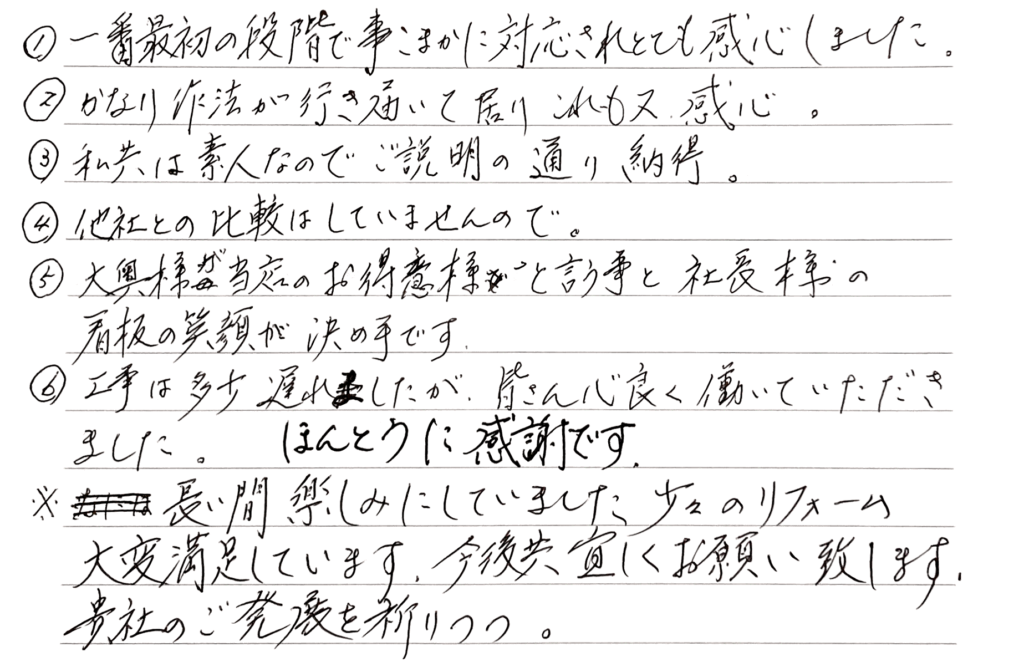 ① 一番最初の段階で事こまかに対応されとても感心しました。
② かなり作法が行き届いて居り これも又 感心 。
③ 私共は素人なのでご説明の通り 納得。
④ 他社との比較はしていませんので。
⑤ 大奥様が当店のお得意様 と言う事と 社長様の
看板の笑顔が 決め手です.
⑥ 工事は多少 遅れましたが、皆さん心良く働いていただき
ました。 ほんとうに感謝です.
※ 長い間 楽しみにしていました 少々のリフォーム
大変満足しています. 今後共 宜しくお願い致します.
貴社のご発展を祈りつつ 。